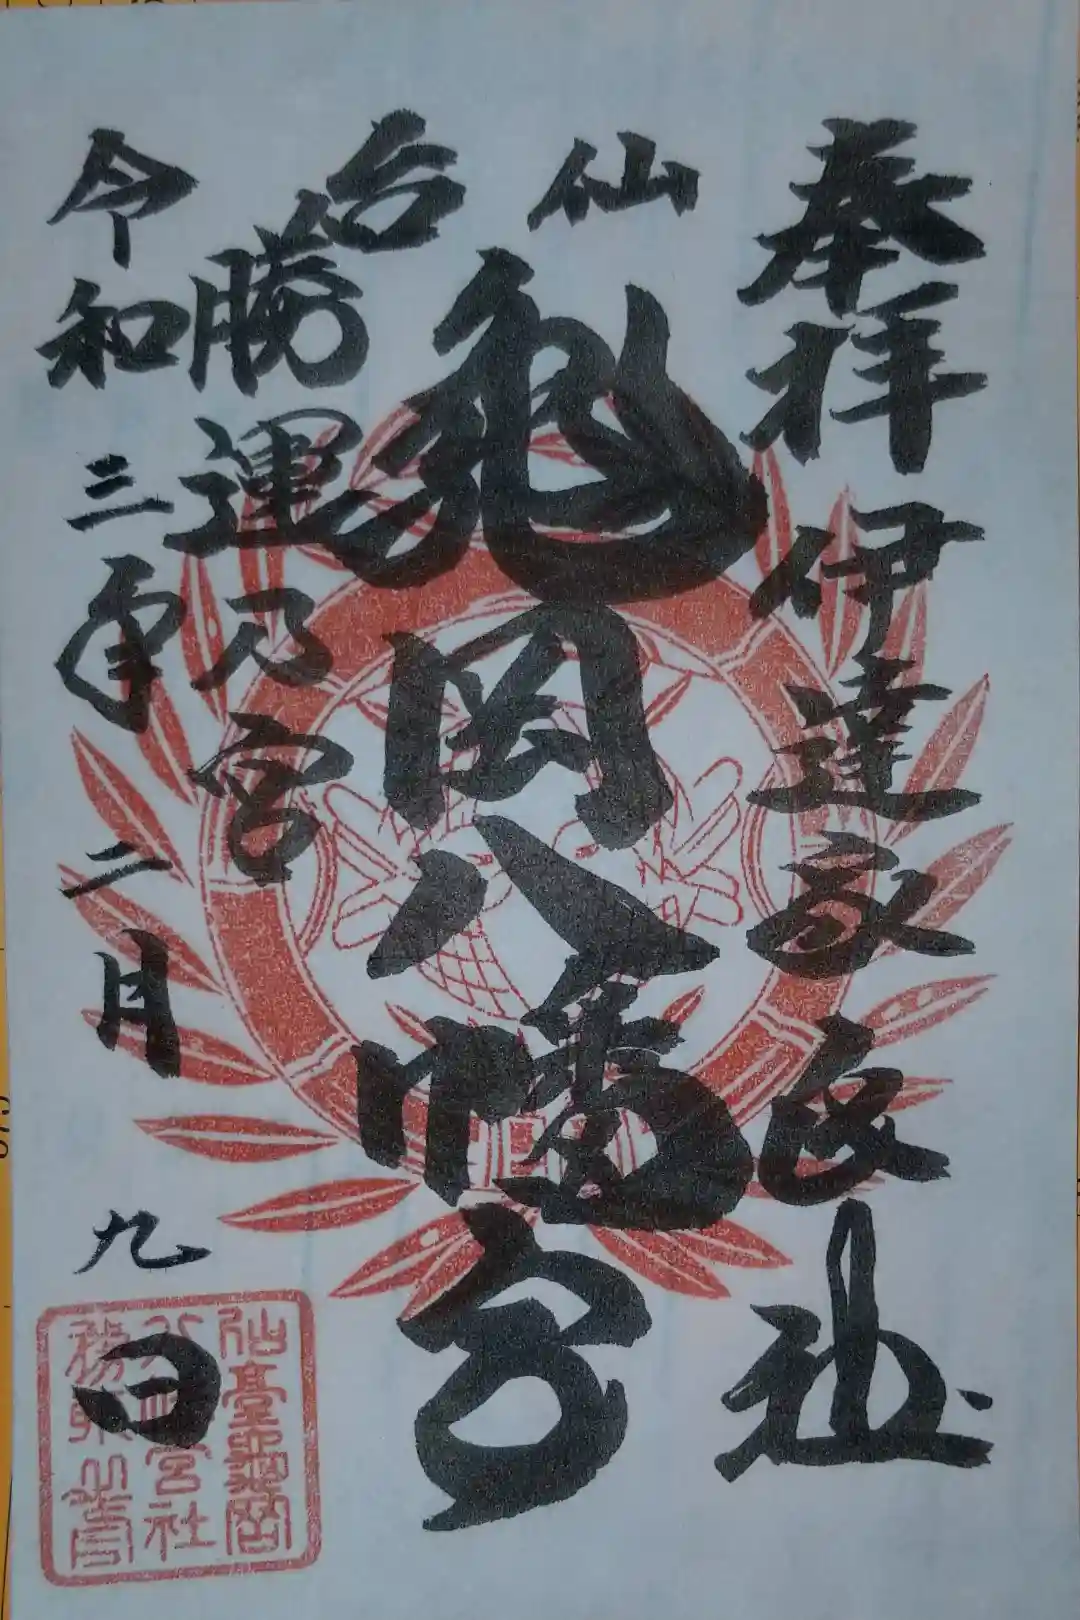 奉拝
伊達家氏社
仙台
亀岡八幡宮
勝運乃宮
令和三年二月九日
仙臺龜岡
八幡宮社
務所之書